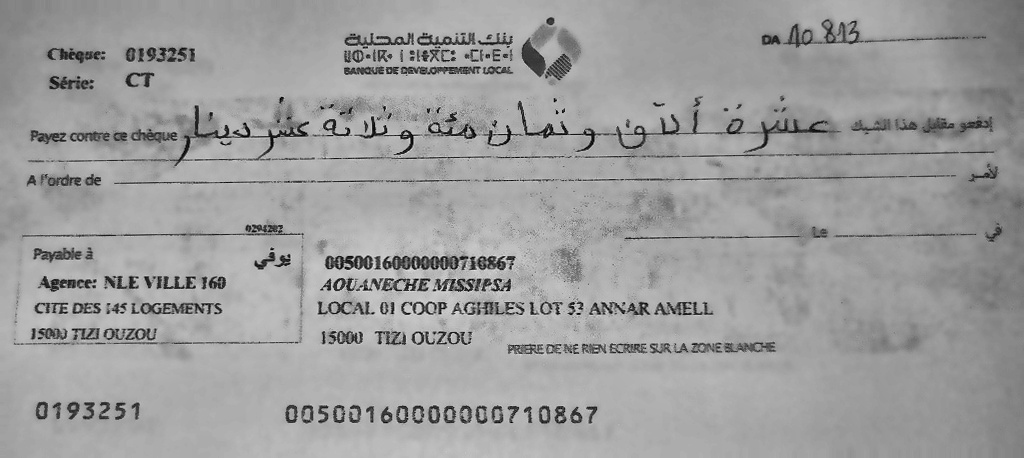 بنك التنمية المحلية
BANQUE DE DEVELOPPEMENT LOCAL
Chèque: 0193251
Série: CT
DA 10 813
Payez contre ce chèque عشرة ألاف و ثمان مئة و ثلاثة عشر دينار إدفعو مقابل هذا الشيك
A l'ordre de لأمر
Le في
0294282
Payable à يوفي
Agence: NLE VILLE 160
CITE DES 145 LOGEMENTS
15000 TIZI OUZOU
00500160000000710867
AOUANECHE MISSIPSA
LOCAL 01 COOP AGHILES LOT 53 ANNAR AMELL
15000 TIZI OUZOU
PRIERE DE NE RIEN ECRIRE SUR LA ZONE BLANCHE
0193251 00500160000000710867